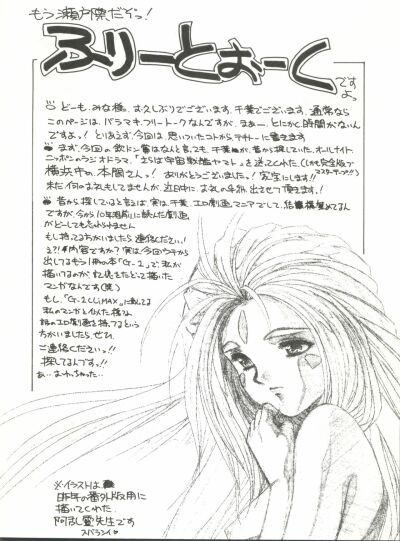 もう瀬戸際だぞっ!
ふりーとぉーく
ですよっ
どーも、みな様。お久しぶりでございます、千葉でございます。通常なら
このページは、バラマキ、フリートークなんですが、まぁー、とにかく時間がないん
ですよっ!とりあえず、今回は、思いついたコトから、テキトーに書きます
まず、今回の
なんと言っても、千葉
が、昔から探していた、オールナイト
ニッポンのラジオドラマ、「さらば宇宙戦艦ヤマト」を送ってくれた(しかも完全版で
マスターテープ!!)
横浜市の、本間さんっ!ありがとうございましたっ!家宝にします!!
まだ何のお礼もしてませんが、近日中に、お礼の
出させて頂きます!
昔から探していると言えば、実は、千葉、エロ劇画マニアでして、結構
集めてるん
ですが、今から10年
前に読んだ劇画
がどーしても忘れられません
もし持ってる方がいましたら、連絡ください!
え?!内容ですか?実は今回ウチから
出してるもう1冊の本「G-2」で、私が
描いてるのが、記憶をたどって描いた
マンガなんです(笑)
もし、「G-2 CLiMAX」に載ってる
私のマンガと似た様な
エロ劇画を持ってるという
方がいましたら、ぜひ、
ご連絡くださいっ!!
探してるんですっ!!
あ…おわっちゃった…
※イラストは
昨年の番外版用に
描いてくれた、
阿乱霊先生です
スバラシイ